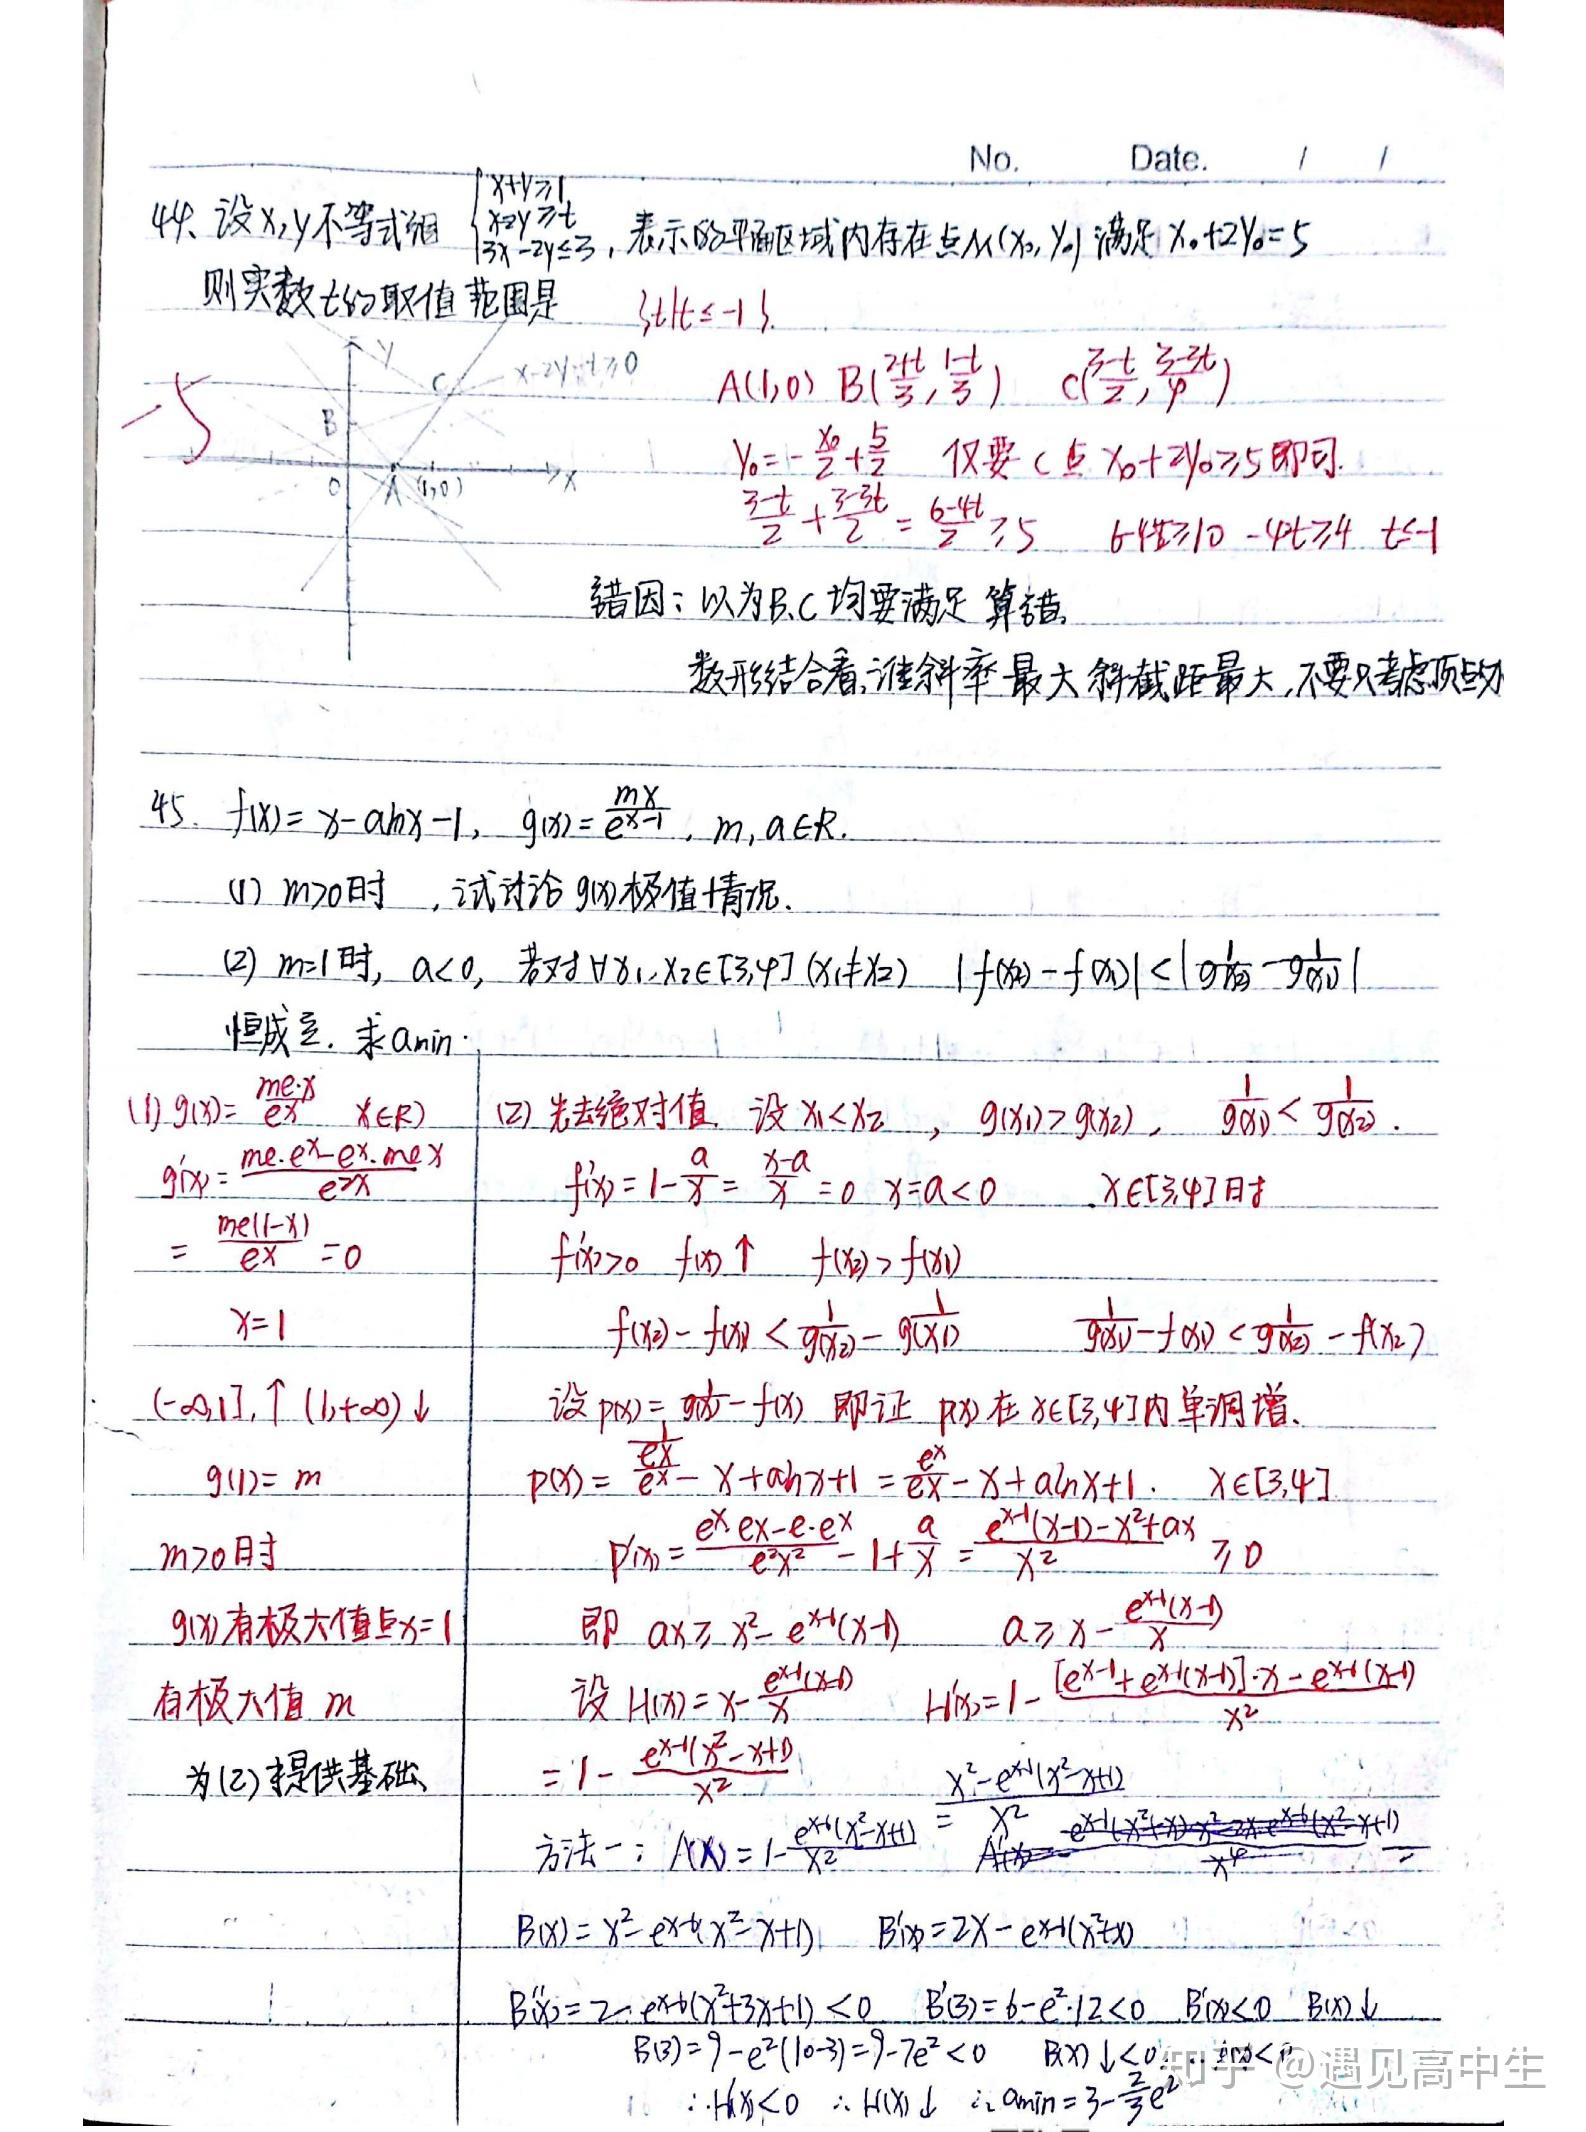 No. Date. / /
44、设x,y不等式组 { x+y≥1, x-2y≥t, 3x-2y≤3, 表示的平面区域内存在点M(x₀,y₀)满足x₀+2y₀=5
则实数t的取值范围是 {t|t≤-1}.
y C x-2y-t≥0
B
O A (1,0) x
-5
A(1,0) B(2+t/3, 1-t/3) C(3-t/2, 3-3t/4)
y₀=-x₀/2+5/2 仅要C点x₀+2y₀≥5即可.
3-t/2+3-3t/2=6-4t/2≥5 6-4t≥10 -4t≥4 t≤-1
错因:以为B、C均要满足 算错.
数形结合看,谁斜率最大 斜截距最大,不要只考虑顶点
45. f(x)=x-alnx-1, g(x)=mx/e^(x-1), m,a∈R.
(1) m>0时,试讨论g(x)极值情况.
(2) m=1时, a<0, 若对∀x₁,x₂∈[3,4](x₁≠x₂) |f(x₂)-f(x₁)|<|1/g(x₂)-1/g(x₁)|
恒成立.求amin.
(1) g(x)=me·x/e^x x∈R)
g'(x)=me·e^x-e^x·mex/e^2x
=me(1-x)/e^x=0
x=1
(-∞,1],↑ (1,+∞)↓
g(1)=m
m>0时
g(x)有极大值点x=1
有极大值 m
为(2)提供基础
(2)先去绝对值.设x₁<x₂, g(x₁)>g(x₂), 1/g(x₁)<1/g(x₂).
f'(x)=1-a/x=x-a/x=0 x=a<0 x∈[3,4]时
f'(x)>0 f(x)↑ f(x₂)>f(x₁)
f(x₂)-f(x₁)<1/g(x₂)-1/g(x₁) 1/g(x₁)-f(x₁)<1/g(x₂)-f(x₂)
设p(x)=1/g(x)-f(x) 即证 p(x)在x∈[3,4]内单调增.
p(x)=1/(ex/e^x)-x+alnx+1=e^x/ex-x+alnx+1. x∈[3,4]
p'(x)=e^x·ex-e·e^x/e²x²-1+a/x=e^(x-1)(x-1)-x²+ax/x²≥0
即 ax≥x²-e^(x-1)(x-1) a≥x-e^(x-1)(x-1)/x
设H(x)=x-e^(x-1)(x-1)/x H'(x)=1-[e^(x-1)+e^(x-1)(x-1)]·x-e^(x-1)(x-1)/x²
=1-e^(x-1)(x²-x+1)/x²
=x²-e^(x-1)(x²-x+1)/x²
方法一: A(x)=1-e^(x-1)(x²-x+1)/x²
B(x)=x²-e^(x-1)(x²-x+1) B'(x)=2x-e^(x-1)(x²+x)
B''(x)=2-e^(x-1)(x²+3x+1)<0 B'(3)=6-e²·12<0 B'(x)<0 B(x)↓
B(3)=9-e²(10-3)=9-7e²<0 B(x)↓<0
∴H'(x)<0 ∴H(x)↓ ∴amin=3-2/3e²
知乎 @遇见高中生